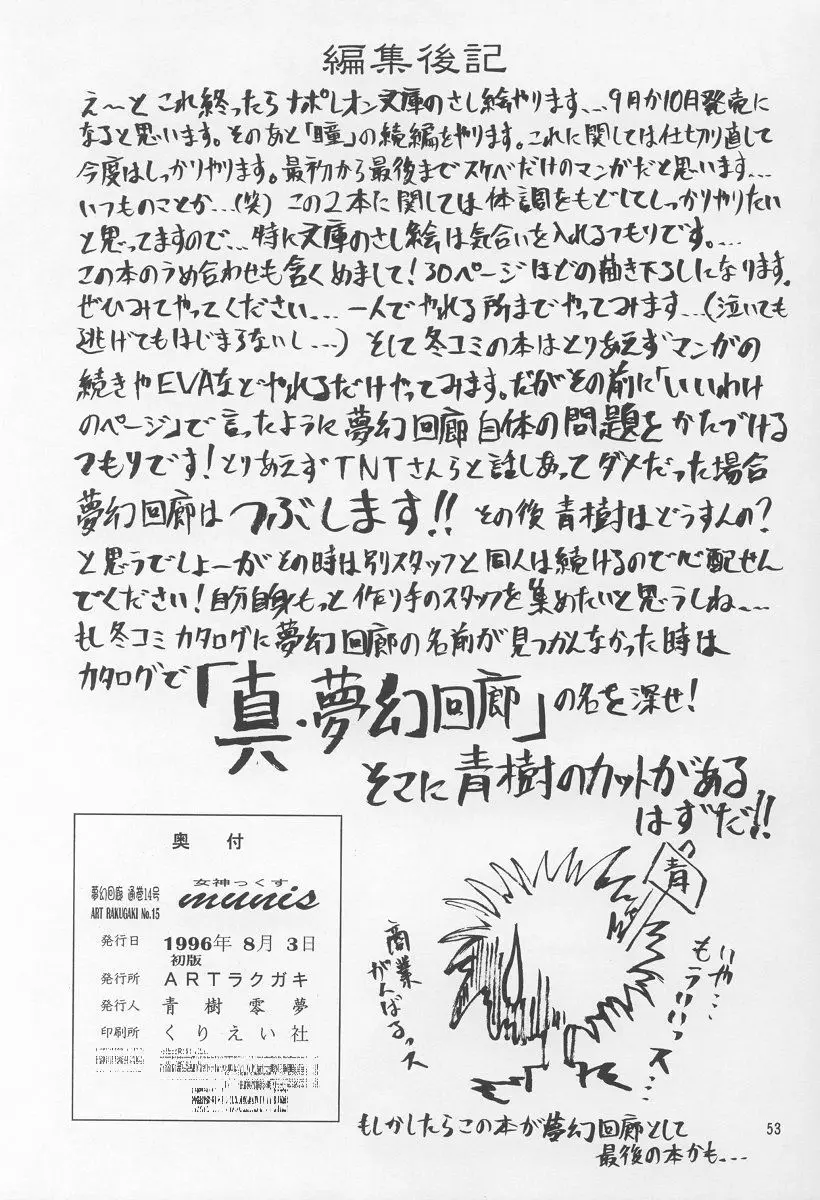 編集後記
え〜と これ終ったら ナポレオン文庫のさし絵やります...9月か10月発売に
なると思います。そのあと「瞳」の続編をやります。これに関しては仕切り直して
今度はしっかりやります。最初から最後までスケベだけのマンガだと思います...
いつものことか...(笑) この2本に関しては体調をもどしてしっかりやりたい
と思ってますので...特に文庫のさし絵は気合いを入れるつもりです。...
この本のうめ合わせも含くめまして!30ページほどの描き下ろしになります。
ぜひみてやってください... 一人でやれる所までやってみます...(泣いても
逃げてもはじまらないし...) そして冬コミの本はとりあえずマンガの
続きやEVAなどやれるだけやってみます。だがその前に「いいわけ
のページ」で言ったように夢幻回廊自体の問題をかたづける
つもりです!とりあえずTNTさんらと話しあってダメだった場合
夢幻回廊は つぶします!! その後青樹はどうすんの?
と思うでしょーがその時は別スタッフと同人は続けるので心配せん
でください!自分自身もっと作り手のスタッフを集めたいと思うしね...
もし冬コミカタログに夢幻回廊の名前が見つかんなかった時は
カタログで「真・夢幻回廊」の名を深せ!
そこに青樹のカットがある
はずだ!!
奥付
夢幻回廊 通巻14号
ART RAKUGAKI No.15
女神っくす
munis
発行日 1996年 8月 3日
初版
発行所 ARTラクガキ
発行人 青樹零夢
印刷所 くりえい社
青
商業
がんばるっス
いや...
もういいっス...
もしかしたらこの本が夢幻回廊として
最後の本かも...
53